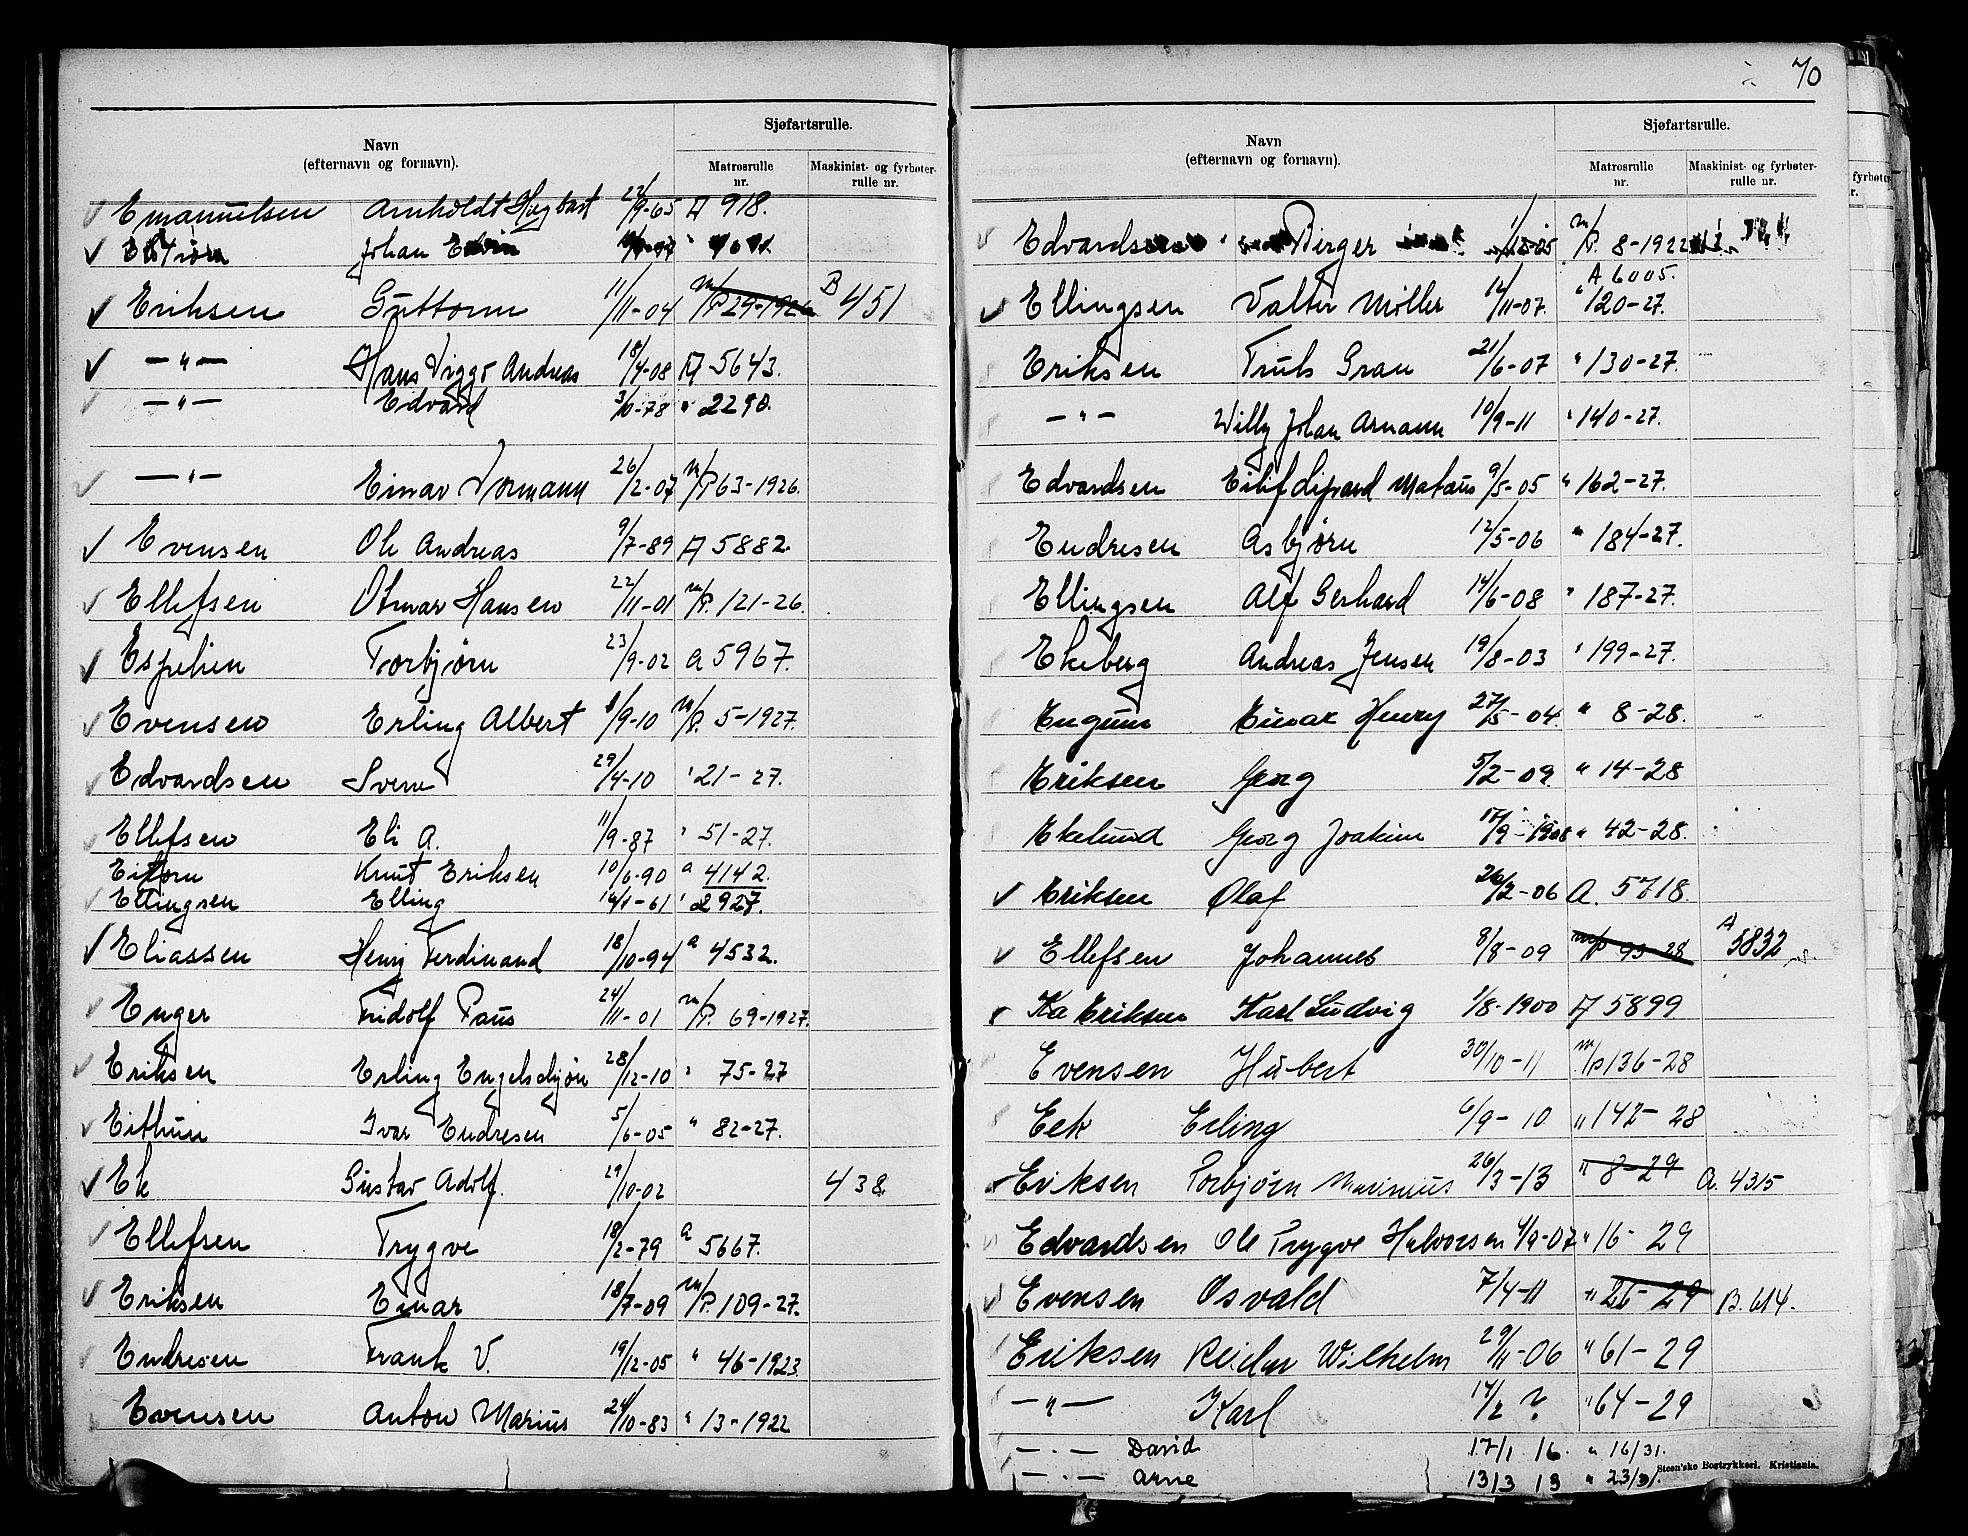 Sjøfartsrulle.
Navn
(efternavn og fornavn).
Matrosrulle nr.
Maskinist- og fyrbøter-rulle nr.
Emanuelsen Arnholdt Hagbart 22/9-65 A 918.
Johan Edvin
Eriksen Guttorm 11/11-04 M/P 29-1926 B 451
—"— Hans Viggo Andreas 18/4-08 A 5643.
—"— Edvard 78 " 2290.
—"— Einar Normann 26/2-07 M/P 63-1926.
Evensen Ole Andreas 9/7-89 A 5882.
Ellefsen Otmar Hansen 22/11-01 M/P. 121-26.
Espelien Torbjørn 23/9-02 a 5967.
Evensen Erling Albert 8/9-10 M/P. 5-1927.
Edvardsen Sverre 29/4-10 " 21-27.
Ellefsen Eli A. 11/9-87 " 51-27.
Knut Eriksen 10/6-90 a 4142.
Ellingsen Elling 14/1-61 " 2927.
Eliassen Henry Ferdinand 18/10-94 a 4532.
Enger Fridolf Paus 24/11-01 M/P. 69-1927.
Eriksen Erling Engelsbjøn 28/12-10 " 75-27
Eithun Ivar Endresen 5/6-05 " 82-27.
Ek Gustav Adolf. 29/10-02 438
Ellefsen Trygve 18/2-79 a 5667.
Eriksen Einar 18/7-09 M/P. 109-27.
Endresen Frank V. 19/12-05 " 46-1923.
Evensen Anton Marius 24/10-83 " 13-1922
70
Sjøfartsrulle.
Navn
(efternavn og fornavn).
Matrosrulle nr.
Maskinist- og fyrbøter-rulle nr.
fyrbøter
r.
Edvardsen Birger M/P. 8-1922
A 6005.
Ellingsen Valter Møller 14/11-07. " 120-27.
Eriksen Truls Gran 21/6-07 " 130-27.
—"— Willy Johan Armann 10/9-11 " 140-27.
Edvardsen Eilif 9/5-05 " 162-27.
Endresen Asbjørn 12/5-06 " 184-27.
Ellingsen Alf Gerhard 14/6-08 " 187-27.
Ekeberg Andreas Jensen 19/8-03 " 199-27.
Engum Einar Henry 27/5-04. " 8-28.
Eriksen Georg 5/2-09. " 14-28
Ekelund Georg Joakim 17/9-1908 " 42-28.
Eriksen Olaf 26/2-06 A. 5718.
Ellefsen Johannes 8/8-09 M/P 93-28 A 5832
Ka Eriksen Karl Ludvig 1/8-1900 A 5899
Evensen Hubert 30/10-11 M/P 136-28
Eek Erling 6/9-10 " 142-28
Eriksen Torbjørn Marinius 26/3-13 " 8-29 A. 4315
Edvardsen Ole Trygve Halvorsen 4/9-07 " 16-29
Evensen Osvald 7/4-11 " 26-29 B. 614.
Eriksen Reidar Wilhelm 29/11-06 " 61-29
—"— Karl 14/2 ? " 64-29
—.— David 17/1 16. " 16/31.
—.— Arne 13/3 13 " 23/31.
Steen'ske Bogtrykkeri. Kristiania.